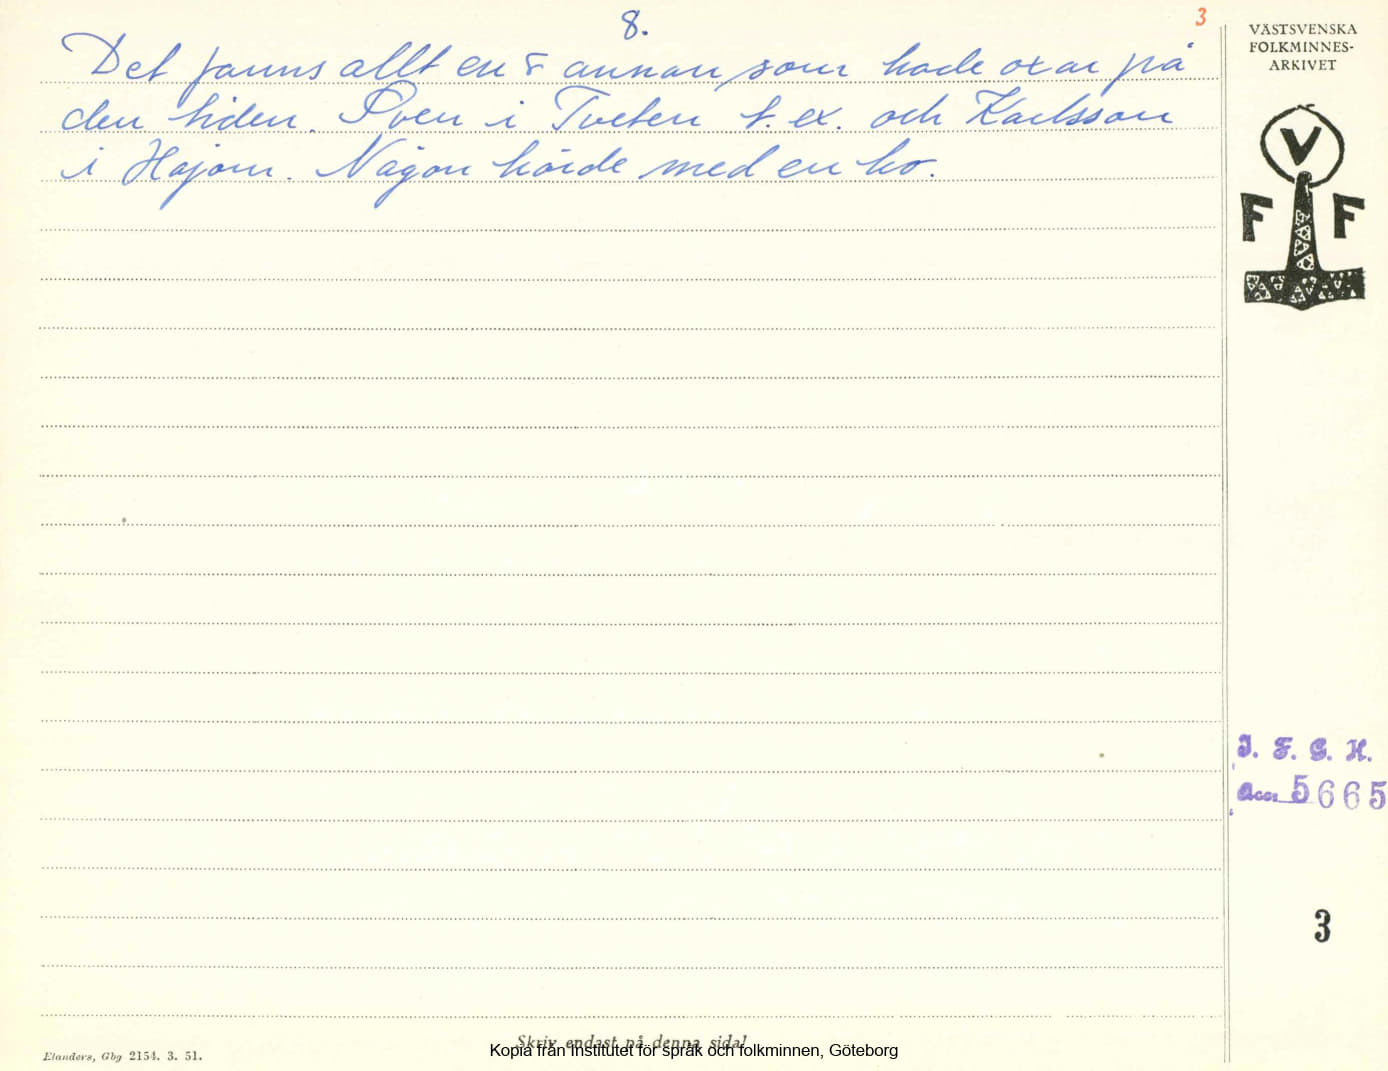 8.
3
Det fanns allt en & annan, som hade oxar på
den tiden. Sven i Tveten t. ex. och Karlsson
i Hajom. Någon körde med en ko.
VÄSTSVENSKA
FOLKMINNES-
ARKIVET
V
F F
I. F. G. H.
Acc. 5665
3
Skriv endast på denna sida!
Kopia från Institutet för språk och folkminnen, Göteborg
Elanders, Gbg 2154. 3. 51.